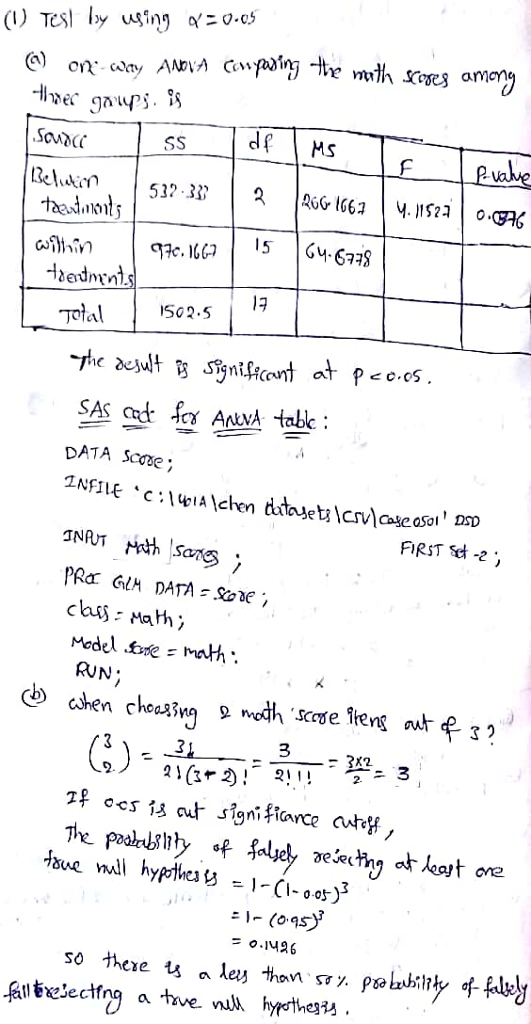 (1) Test by using α=0.05
(a) one-way ANOVA comparing the math scores among
three groups. is
Source SS df MS F P-value
Between treatments 532.333 2 266.1667 4.11527 0.0376
within treatments 970.1667 15 64.6778
Total 1502.5 17
The result is significant at p<0.05.
SAS code for ANOVA table:
DATA Score;
INFILE 'C:\ \chen datasets\csv\case0501' DSD
FIRST -2;
INPUT Math scores;
PROC GLM DATA = Score;
class = Math;
Model score = math:
RUN;
(b) when choosing 2 math score items out of 3?
(3 2) = 3! / 2!(3-2)! = 3 / 2!1! = 3x2 / 2 = 3
If 0.05 is out significance cutoff,
The probability of falsely rejecting at least one
true null hypothesis = 1-(1-0.05)3
= 1-(0.95)3
= 0.1426
so there is a less than 50% probability of falsely
rejecting a true null hypothesis.